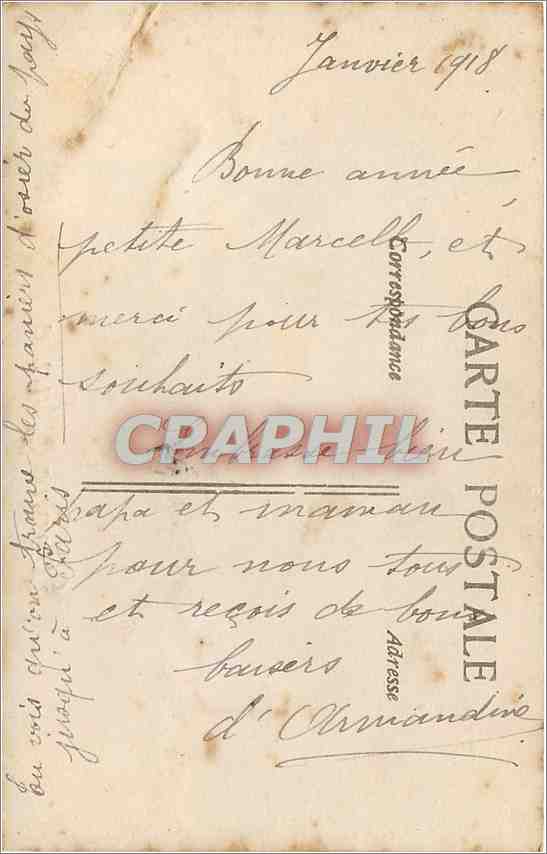 Janvier 1918
Bonne année
petite Marcelle, et
merci pour tes bons
souhaits
Embrasse bien
papa et maman
pour nous tous
et reçois de bons
baisers
d'Armandine
Tu vois qu'on trouve des paniers d'osier du pays
jusqu'à Paris
CARTE POSTALE
Correspondance
Adresse
CPAPHIL